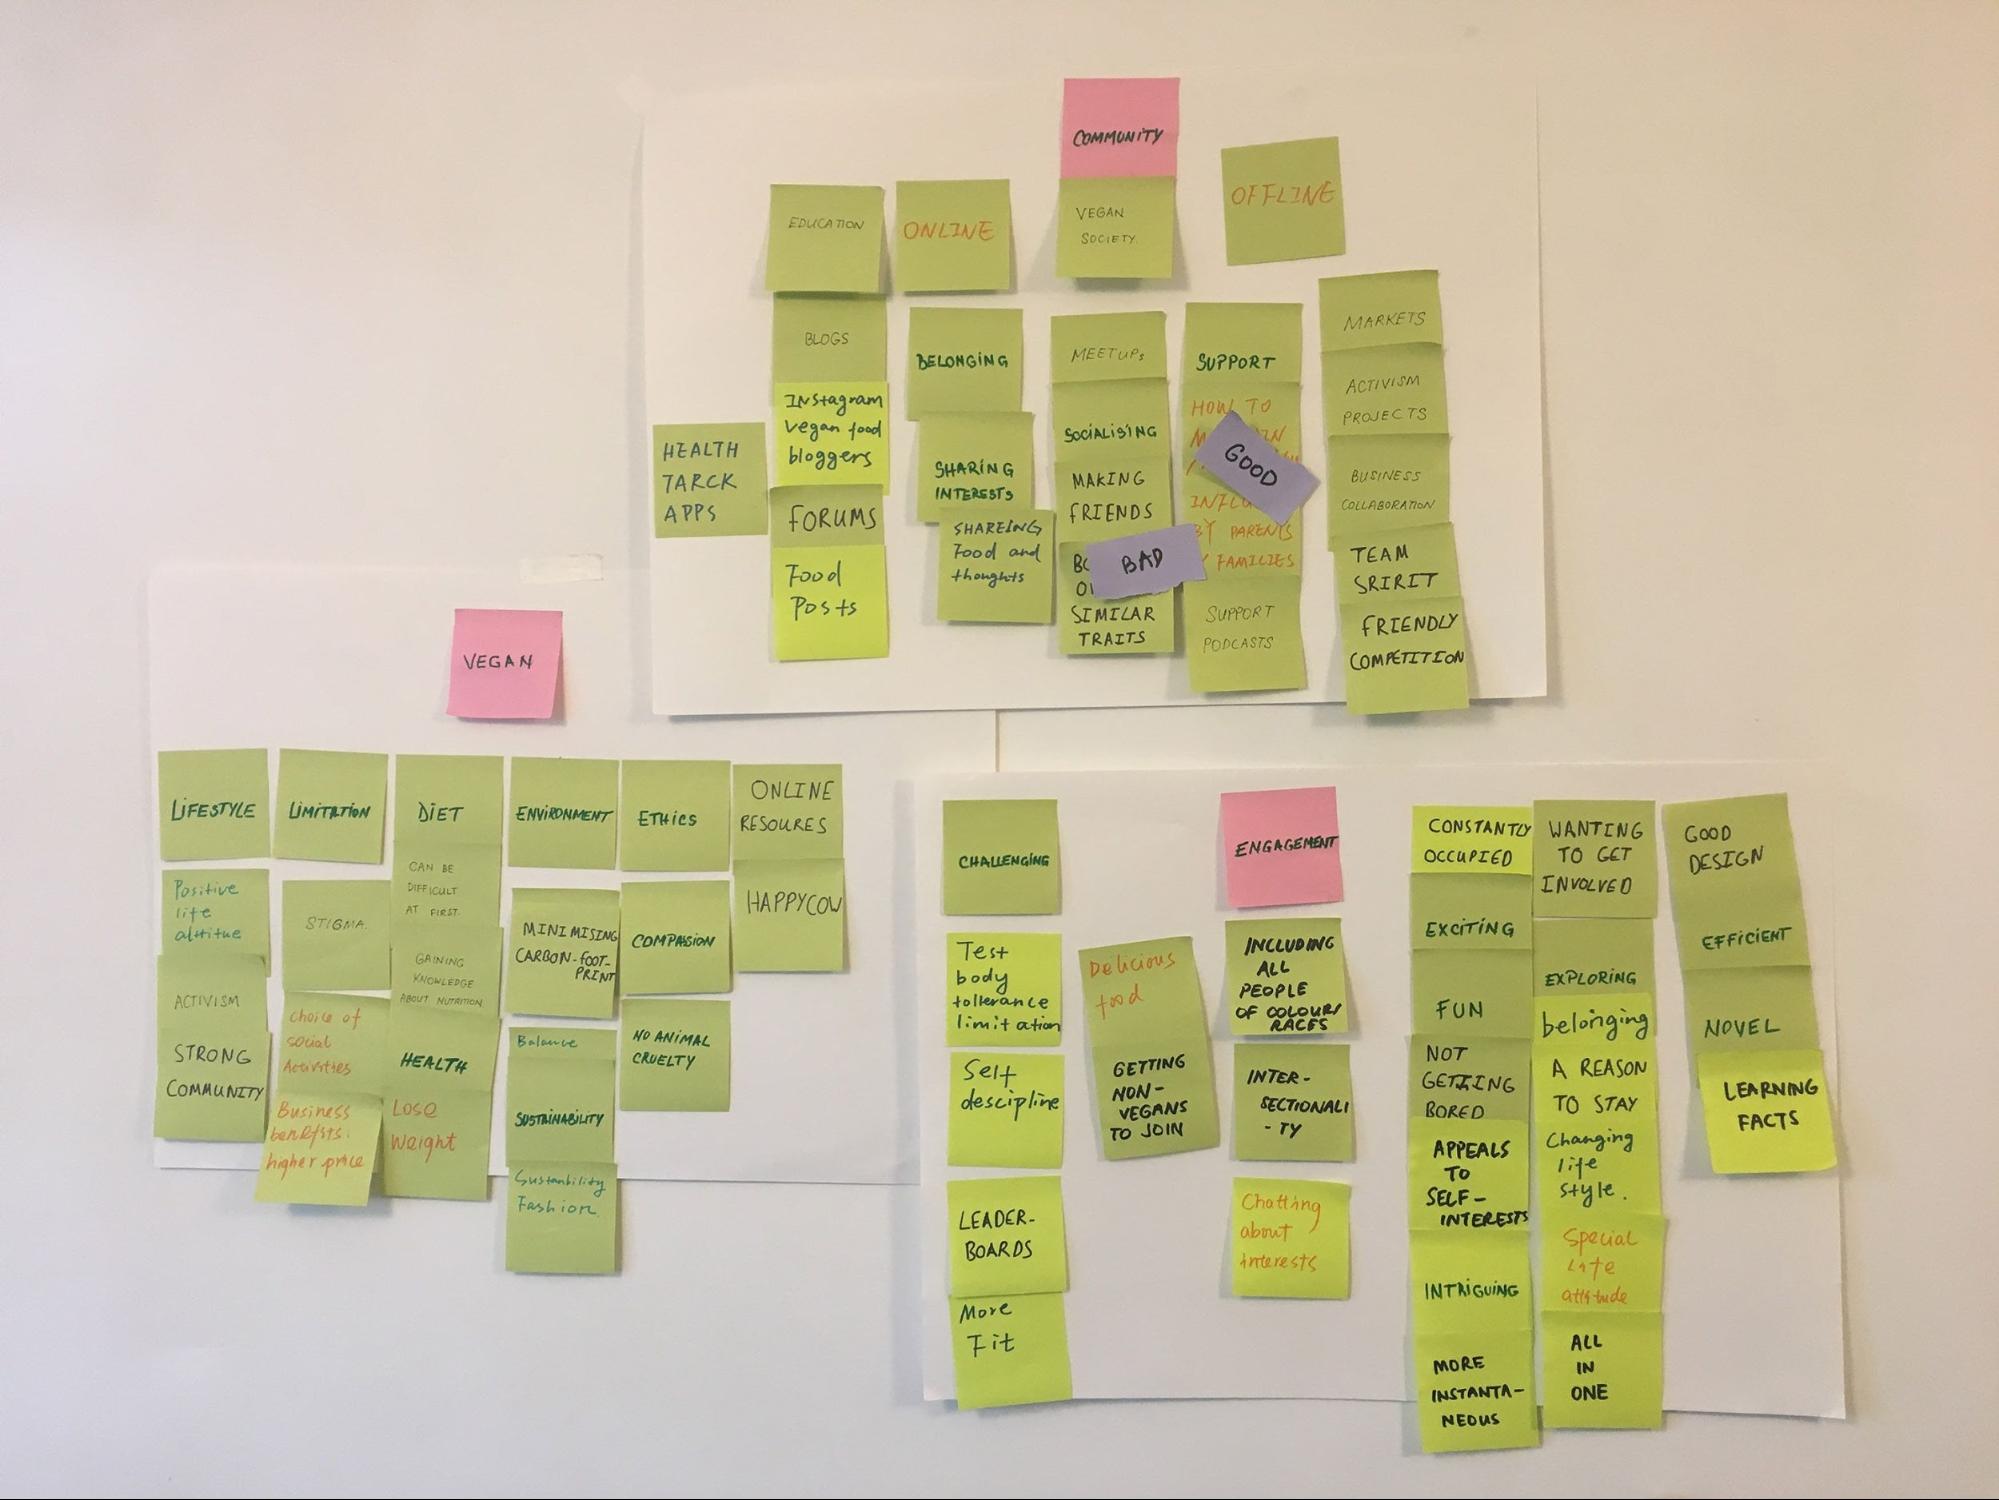 COMMUNITY
VEGAN
SOCIETY.
OFFLINE
EDUCATION
ONLINE
BLOGS
INstagram
vegan food
bloggers
FORUMS
Food
Posts
HEALTH
TARCK
APPS
BELONGING
SHARING
INTERESTS
SHAREING
Food and
thoughts
MEETUPs
SOCIALISING
MAKING
FRIENDS
BAD
SIMILAR
TRAITS
SUPPORT
HOW TO
GOOD
BY PARENTS
FAMILIES
SUPPORT
PODCASTS
MARKETS
ACTIVISM
PROJECTS
BUSINESS
COLLABORATION
TEAM
SRIRIT
FRIENDLY
COMPETITION
VEGAN
LIFESTYLE
Positive
life
altitue
ACTIVISM
STRONG
COMMUNITY
LIMITATION
STIGMA.
choice of
social
Activities
Business
benefits.
higher price
DIET
CAN BE
DIFFICULT
AT FIRST.
GAINING
KNOWLEDGE
ABOUT NUTRITION
HEALTH
Lose
Weight
ENVIRONMENT
MINIMISING
CARBON-FOOT-
PRINT
Balance
SUSTAINABILITY
Sustanbility
Fashion.
ETHICS
COMPASSION
NO ANIMAL
CRUELTY
ONLINE
RESOURES
HAPPYCOW
ENGAGEMENT
CHALLENGING
Test
body
tollerance
limitation
Self
descipline
LEADER-
BOARDS
More
Fit
Delicious
food
GETTING
NON-
VEGANS
TO JOIN
INCLUDING
ALL
PEOPLE
OF COLOUR/
RACES
INTER-
SECTIONALI
-TY
Chatting
about
interests
CONSTANTLY
OCCUPIED
EXCITING
FUN
NOT
GETTING
BORED
APPEALS
TO
SELF-
INTERESTS
INTRIGUING
MORE
INSTANTA-
NEOUS
WANTING
TO GET
INVOLVED
EXPLORING
belonging
A REASON
TO STAY
Changing
life
style.
Special
Life
attitude
ALL
IN
ONE
GOOD
DESIGN
EFFICIENT
NOVEL
LEARNING
FACTS